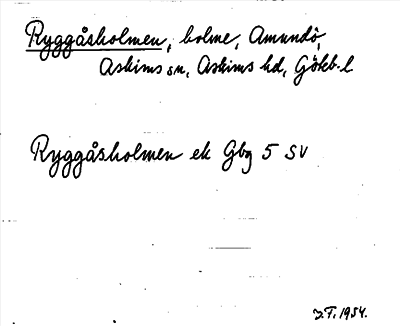 Ryggåsholmen, holme, Amundö,
Askims sn, Askims hd, Göteb. l
Ryggåsholmen ek Gbg 5 SV
J.F. 1954.